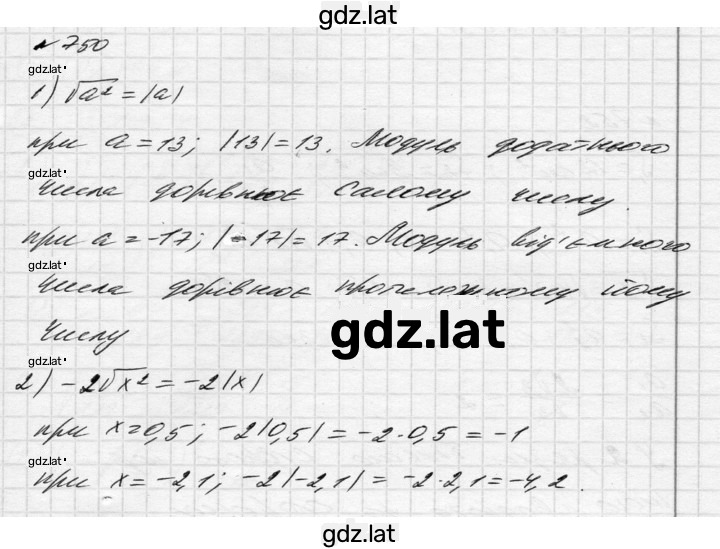 gdz.lat
№ 750
gdz.lat
1) √a² = |a|
при a = 13; |13| = 13. Модуль додатнього
gdz.lat
числа дорівнює самому числу.
при a = -17; |-17| = 17. Модуль від'ємного
gdz.lat
числа дорівнює протилежному йому
gdz.lat
числу
gdz.lat
2) -2√x² = -2|x|
при x = 0,5; -2|0,5| = -2·0,5 = -1
gdz.lat
при x = -2,1; -2|-2,1| = -2·2,1 = -4,2.
gdz.lat